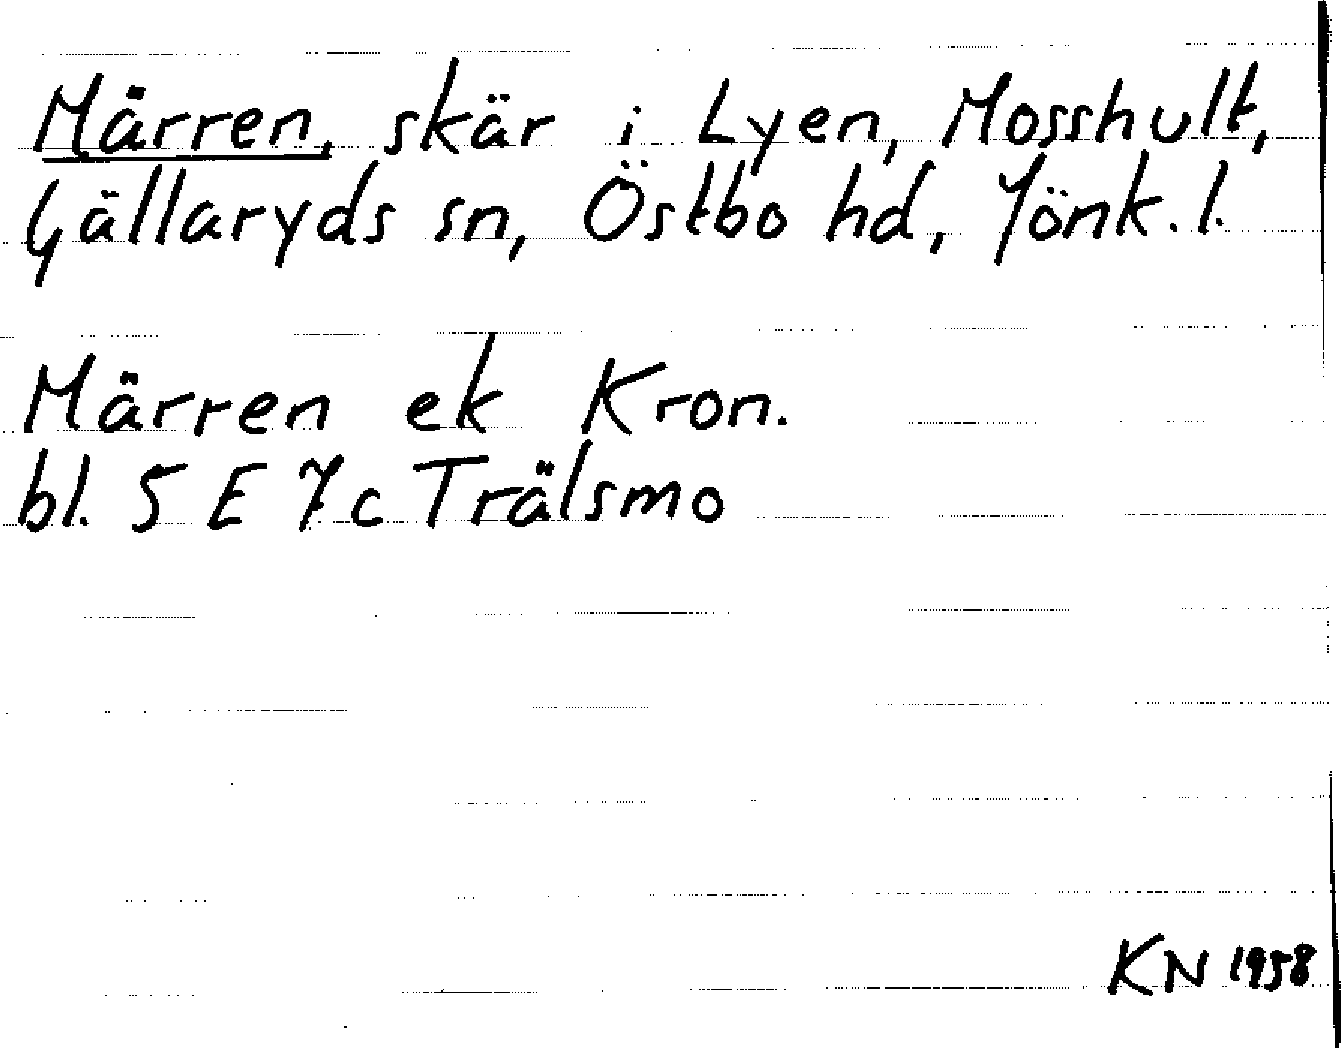 Märren, skär i Lyen, Mosshult,
Gällaryds sn, Östbo hd, Jönk. l.
Märren ek Kron.
bl. 5 E 7 c Trälsmo
KN 1958